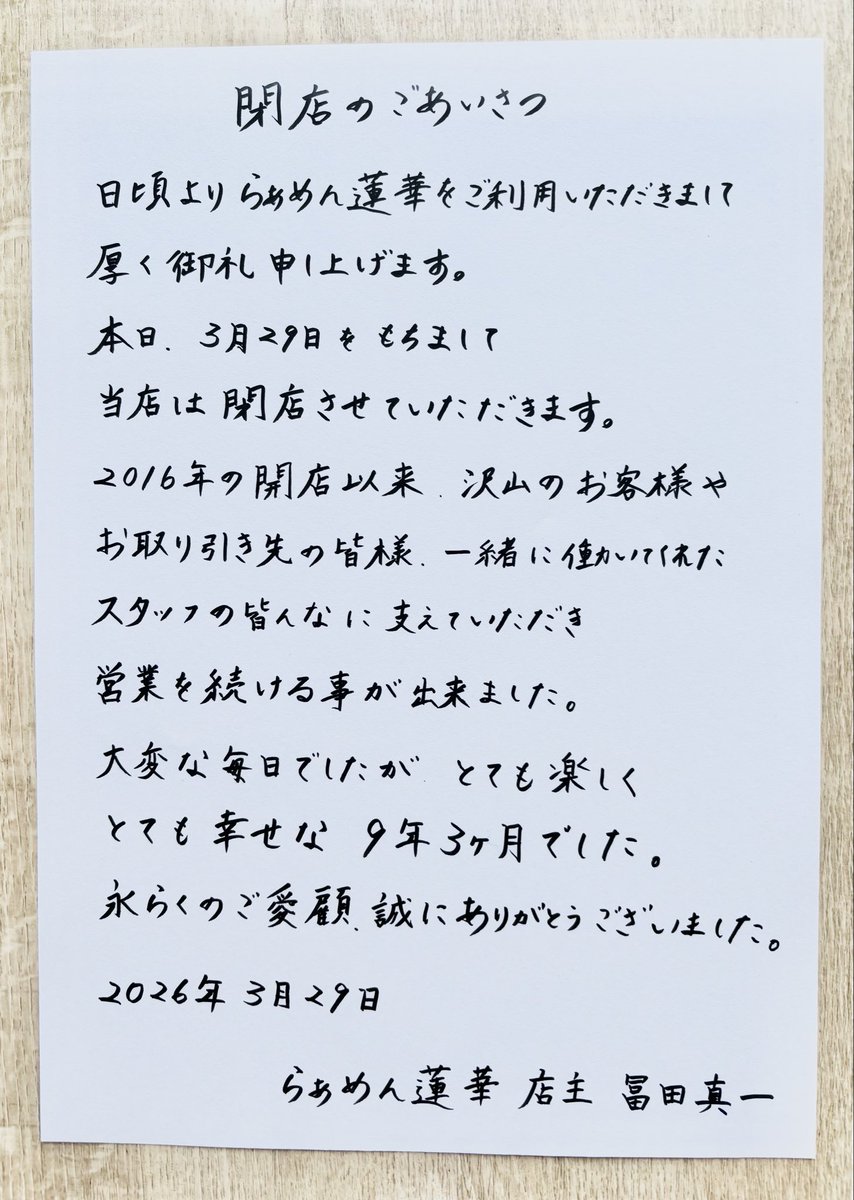 閉店のごあいさつ
日頃よりらぁめん蓮華をご利用いただきまして
厚く御礼申し上げます。
本日、3月29日をもちまして
当店は閉店させていただきます。
2016年の開店以来、沢山のお客様や
お取り引き先の皆様、一緒に働いてくれた
スタッフの皆んなに支えていただき
営業を続ける事が出来ました。
大変な毎日でしたが、とても楽しく
とても幸せな 9年3ヶ月でした。
永らくのご愛顧、誠にありがとうございました。
2026年3月29日
らぁめん蓮華 店主 冨田真一